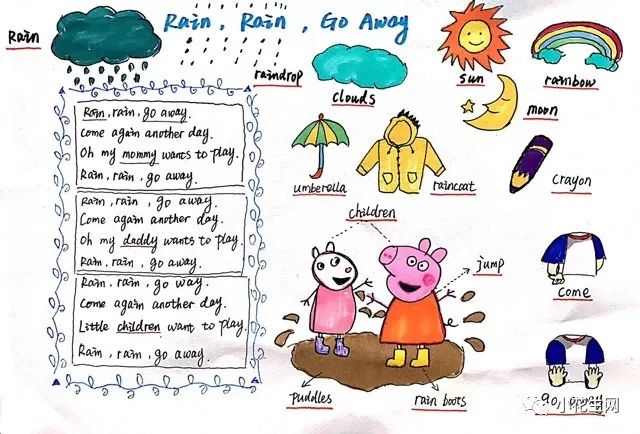 Rain
Rain, Rain, Go Away
raindrop
clouds
sun
rainbow
moon
umberella
raincoat
crayon
Rain, rain, go away.
Come again another day.
Oh my mommy wants to play.
Rain, rain, go away.
Rain, rain, go away.
Come again another day.
Oh my daddy wants to play.
Rain, rain, go away.
Rain, rain, go way.
Come again another day.
Little children want to play.
Rain, rain, go away.
children
jump
come
puddles
rain boots
go away
小花生网